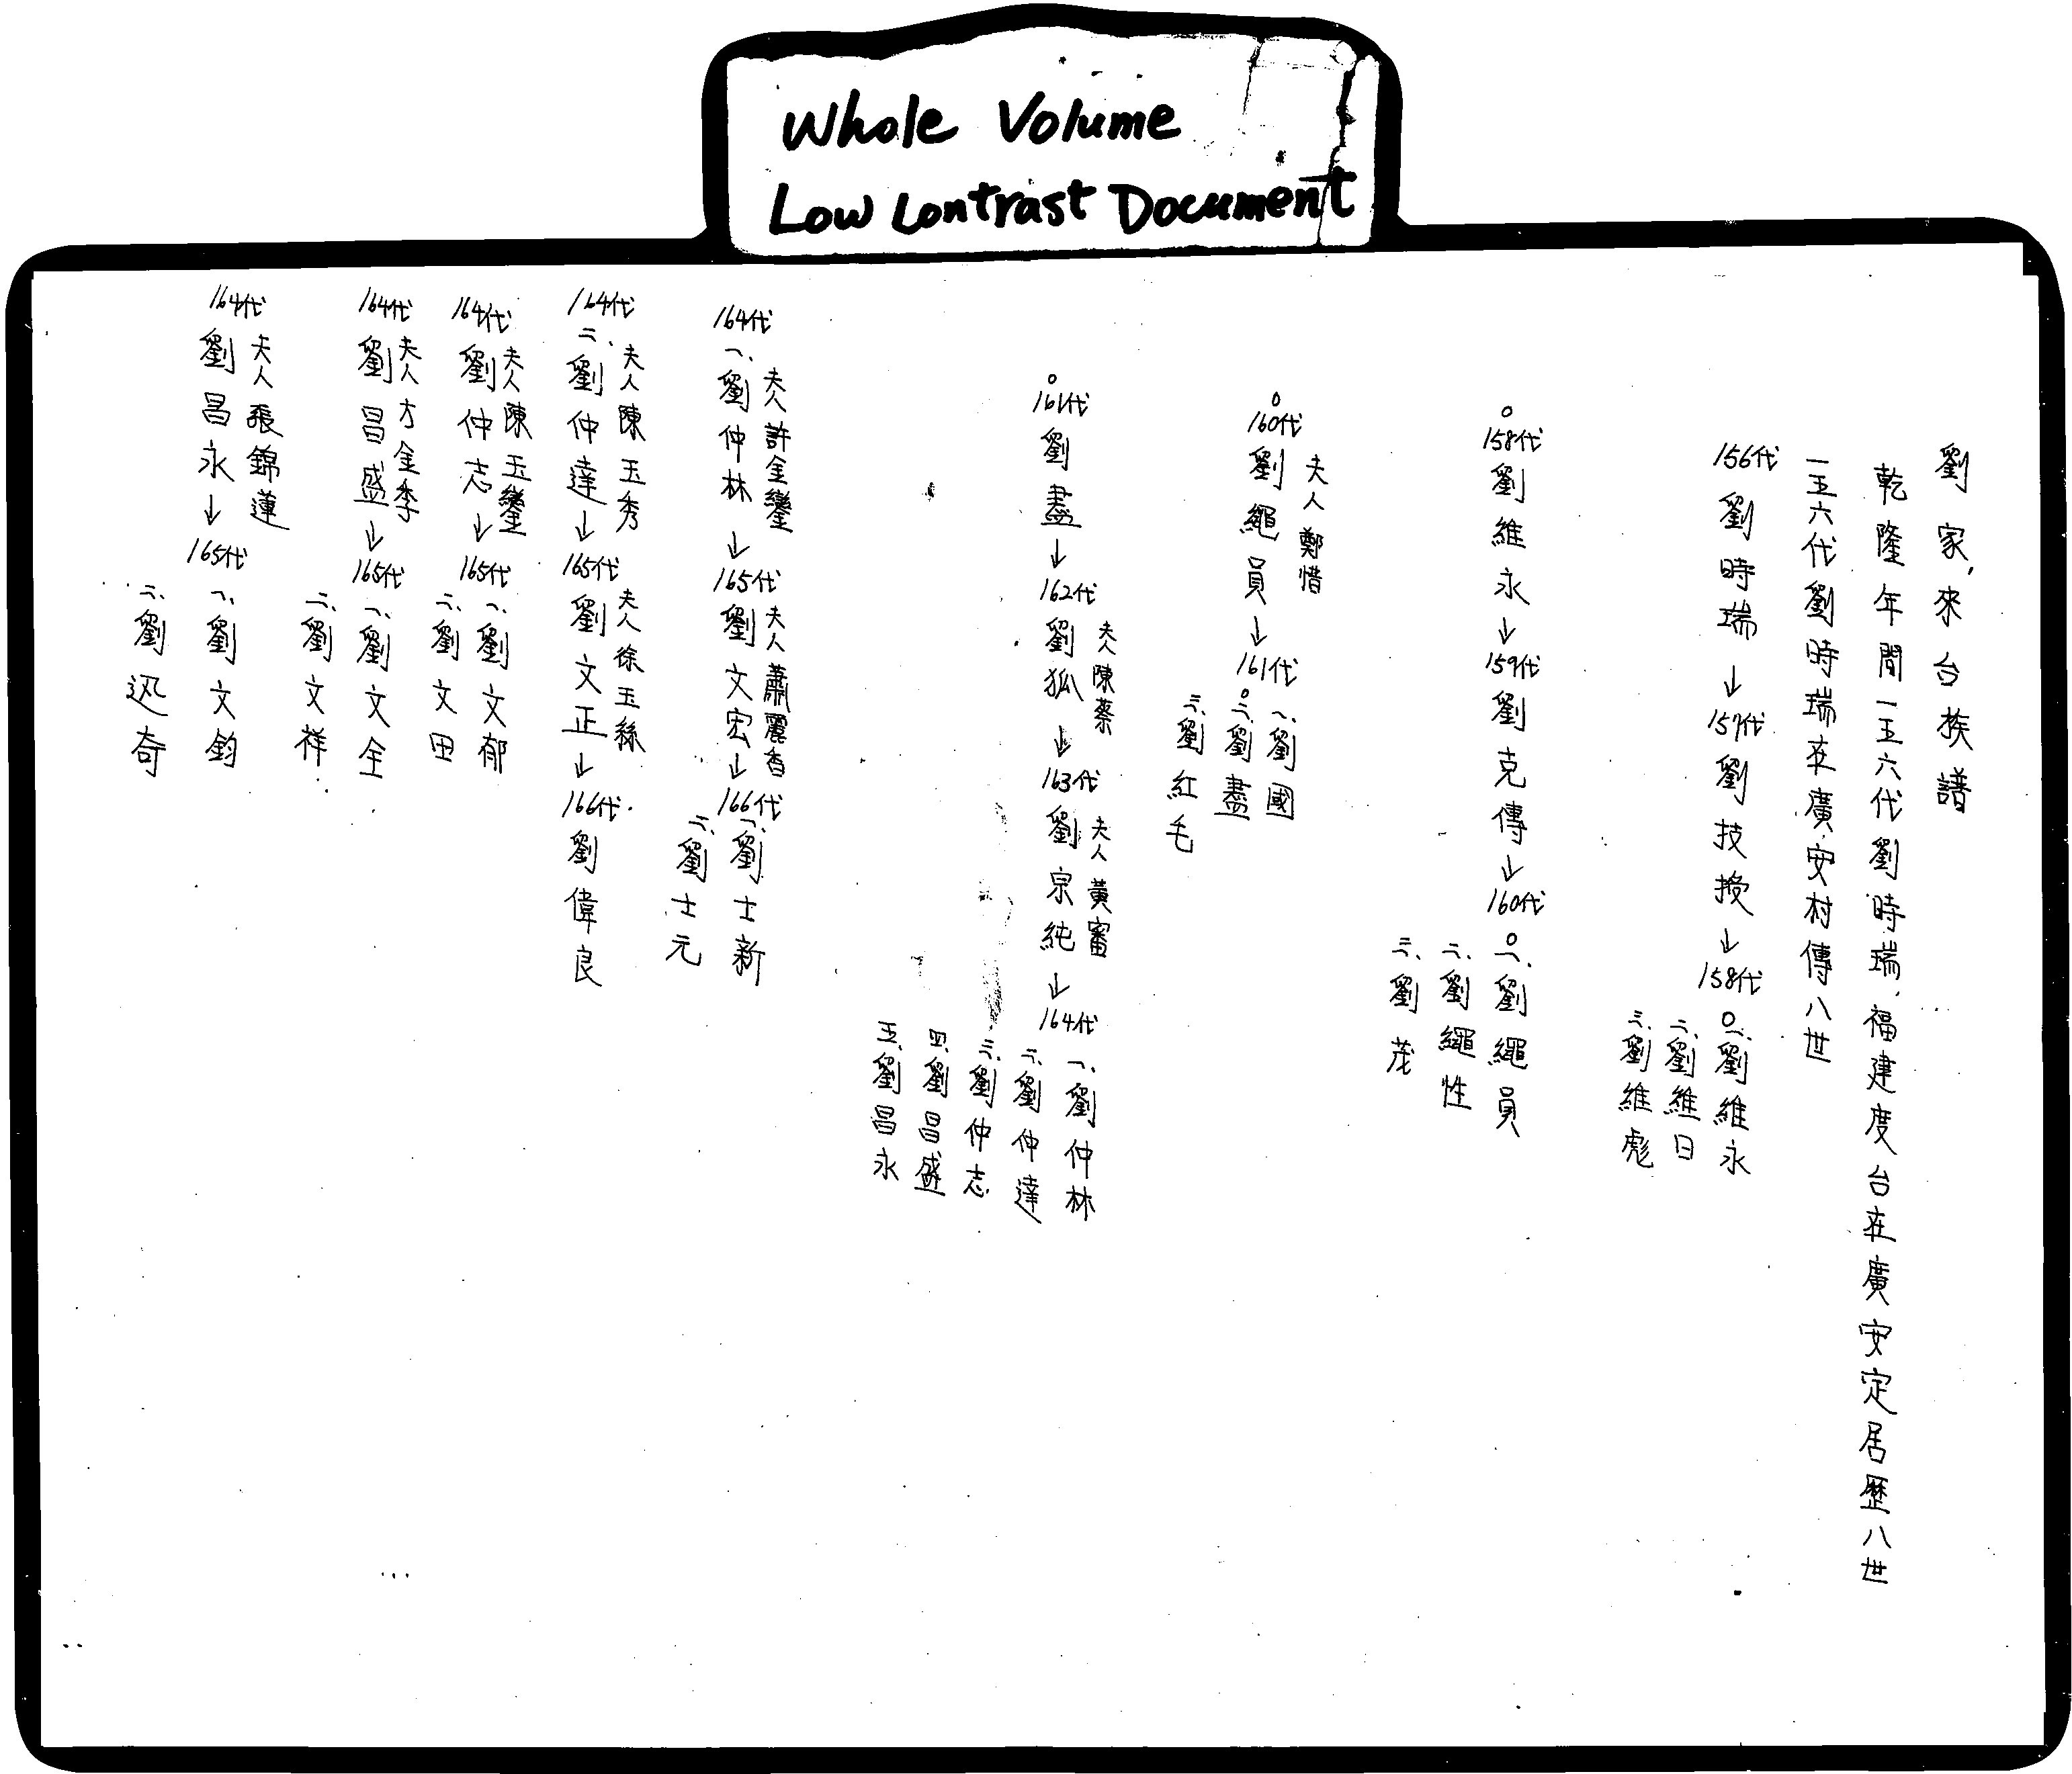 Whole Volume
Low Contrast Document
劉家來台族譜
乾隆年間一五六代劉時瑞,福建度台在廣安定居歷八世
一五六代劉時瑞在廣安村傳八世
156代劉時瑞↓157代劉技授↓158代
○一、劉維永
二、劉維日
三、劉維彪
○158代劉維永↓159代劉克傳↓160代
○一、劉繩員
二、劉繩性
三、劉茂
夫人鄭惜
○160代劉繩員↓161代
一、劉國
○二、劉盡
三、劉紅毛
○161代劉盡↓162代劉狐↓163代劉宗純↓164代
夫人陳蔡
夫人黃審
一、劉仲林
二、劉仲達
三、劉仲志
四、劉昌盛
五、劉昌永
夫人許金鑾
夫人蕭麗香
164代一、劉仲林↓165代劉文宏↓166代
一、劉士新
二、劉士元
夫人陳玉秀
夫人徐玉絲
164代二、劉仲達↓165代劉文正↓166代劉偉良
夫人陳玉鑾
164代劉仲志↓165代
一、劉文郁
二、劉文田
夫人方金季
164代劉昌盛↓165代
一、劉文全
二、劉文祥
夫人張錦蓮
164代劉昌永↓165代
一、劉文鈞
二、劉迅奇